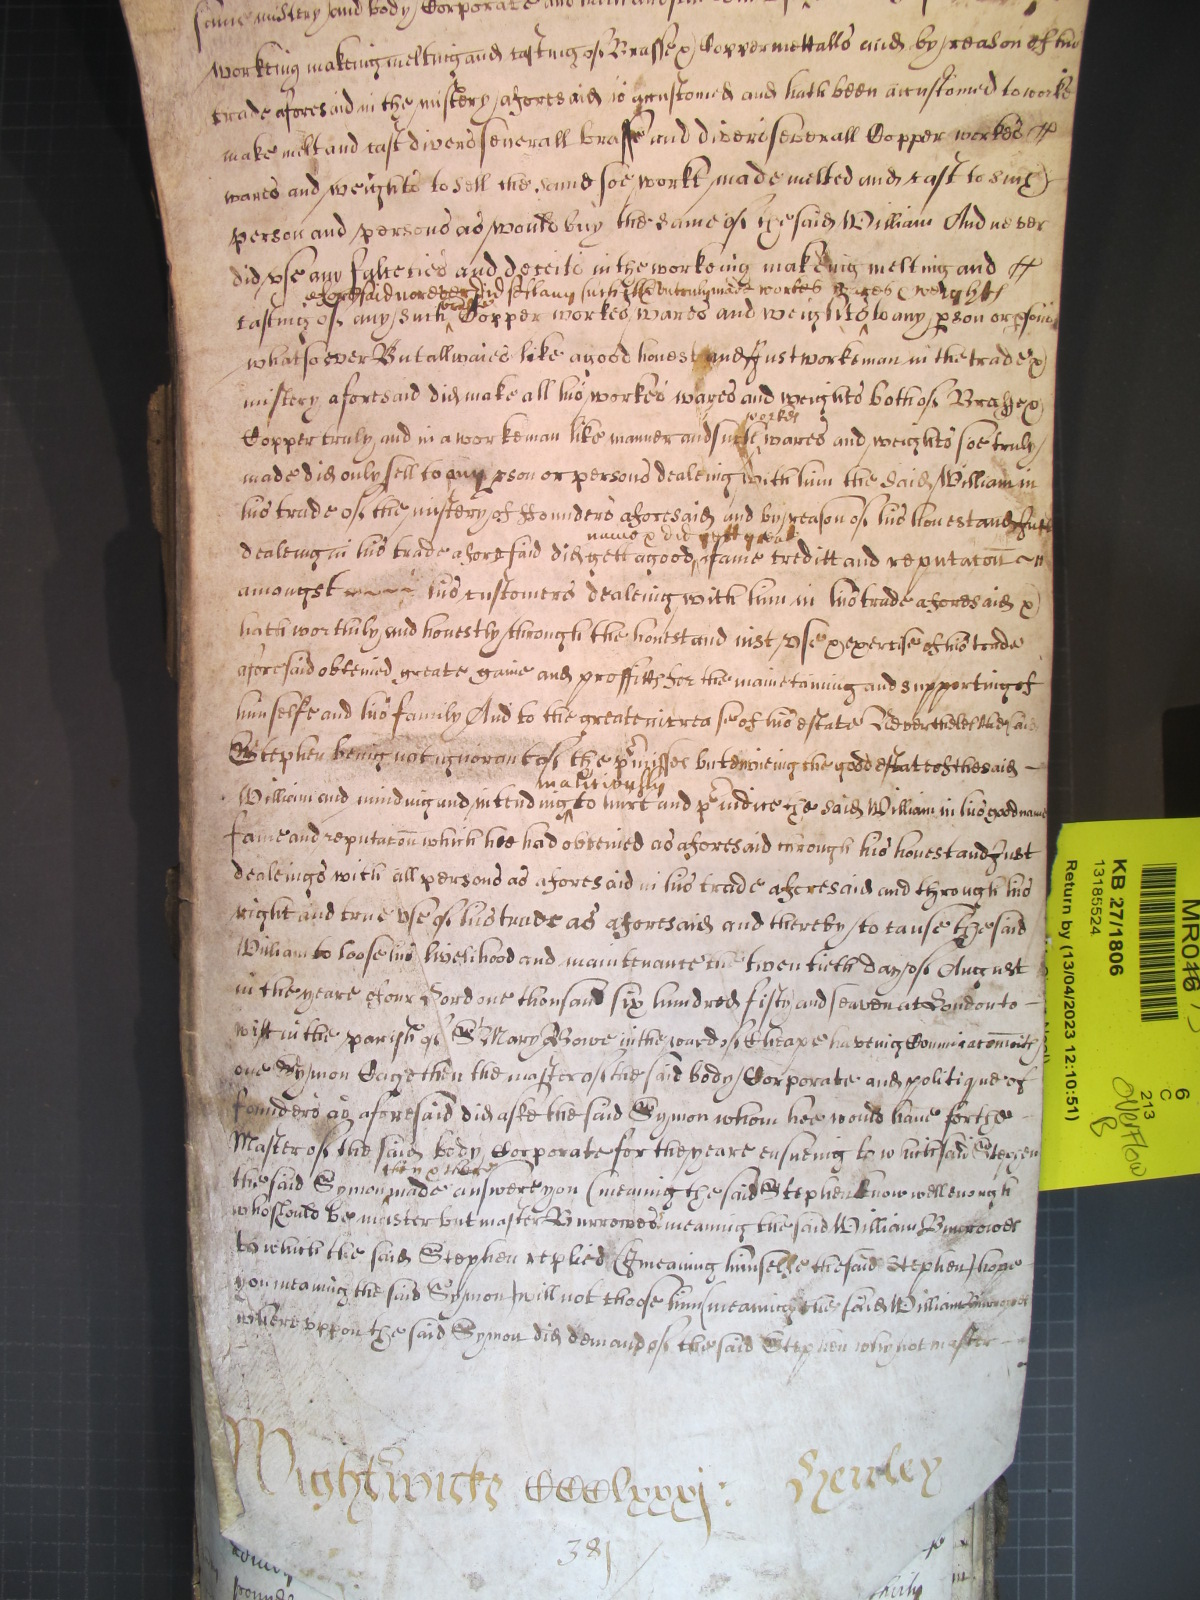 same mistery and body Corporate and
workeing makeing melting and casting of Brasse & Copper mettalls and by reason of his
trade aforesaid in the mistery aforesaid is accustomed and hath been accustomed to worke
make melt and cast divers severall brasse and divers severall Copper workes
wares and weights to sell the same soe workt made melted and cast to such
person and persons as would buy the same of the said William And never
did use any falceties and deceits in the workeing makeing melting and
aforesaid nor ever did sell any such untruly made workes wares & weights
casting of any such Copper workes wares and weights to any pson or psons
whatsoever But allwaies like a good honest and Just workeman in the trade &
mistery aforesaid did make all his workes wares and weights both of Brasse &
workes
Copper truly and in a workeman like manner and such wares and weights soe truly
made did only sell to any pson or persons dealeing with him the said William in
his trade of the mistery of Founders aforesaid and by reason of his honest and Just
name & did gett great
dealeing in his trade aforesaid did gett a good fame creditt and reputacon
amongst his customers dealeing with him in his trade aforesaid &
hath worthily and honestly through the honest and iust use & exercise of his trade
aforesaid obteined greate gaine and proffitt for the mainetaining and supporting of
himselfe and his family And to the greate increase of his estate Neverthelesse the said
Stephen being not ignorant of the pmisses but envieing the good estate of the said
malitiously
William and minding and intending to hurt and preiudice the said William in his good name
fame and reputacon which hee had obteined as aforesaid through his honest and Just
dealeings with all persons as aforesaid in his trade aforesaid and through his
right and true use of his trade as aforesaid and thereby to cause the said
William to loose his livelihood and maintenance the twentieth day of August
in the yeare of our Lord one thousand six hundred fifty and seaven at London to
witt in the parish of St Mary Bowe in the ward of Cheape haveing Communicacon with
one Symon then the master of the said body Corporate and politique of
founders as aforesaid did aske the said Symon whom hee would have for the
Master of the said body Corporate for the yeare ensueing to which said Stephen
then & there
the said Symon made answere you (meaning the said Stephen know well enough
who should be master but master Burrowes meaning the said William Burrowes
to which the said Stephen replied (I meaning himselfe the said Stephen) hope
you meaning the said Symon) will not choose him (meaning the said William Burrowes
whereuppon the said Symon did demand of the said Stephen why not master
Wightwicks CCClxxxj: Henley
381
KB 27/1806
13185524
Return by (13/04/2023 12:10:51)
6
C
213
Overflow
B